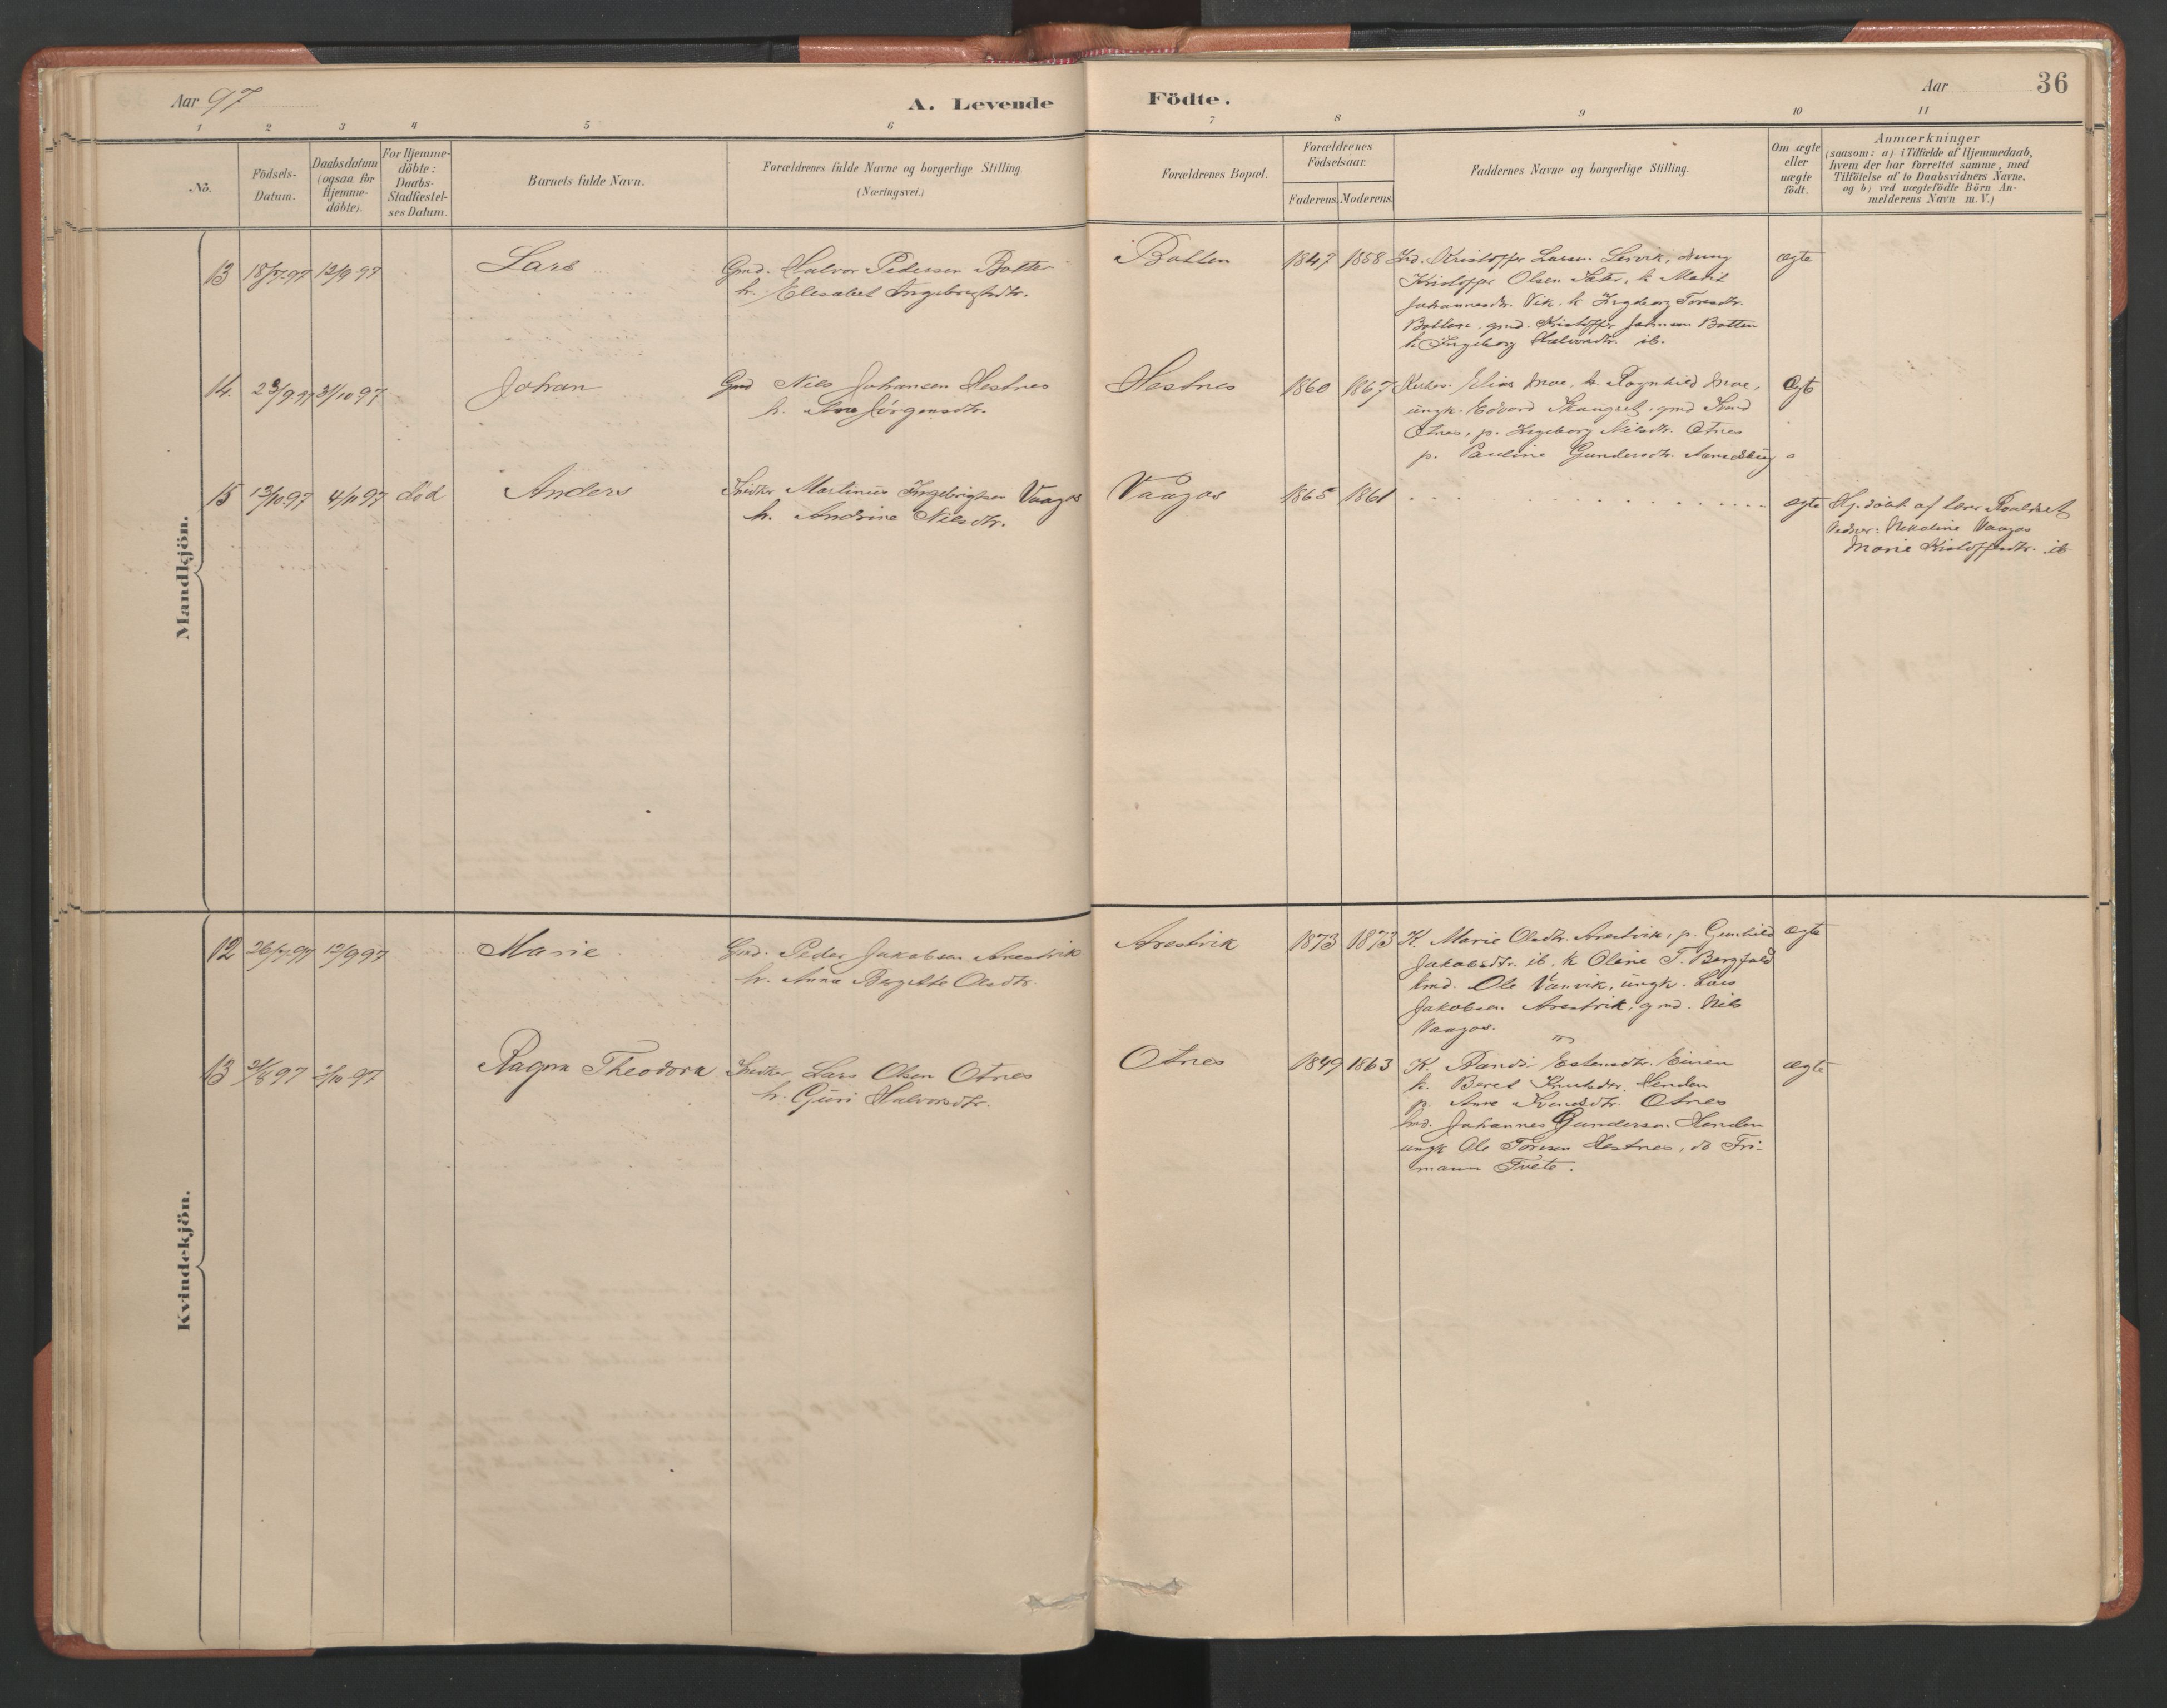 Aar 97
A. Levende Födte.
Aar
36
1 2 3 4 5 6 7 8 9 10 11
No.
Födsels-
Datum.
Daabsdatum
(ogsaa for
Hjemme-
döbte).
For Hjemme-
döbte:
Daabs-
Stadfæstel-
ses Datum.
Barnets fulde Navn.
Forældrenes fulde Navne og borgerlige Stilling.
(Næringsvei.)
Forældrenes Bopæl.
Forældrenes
Födselsaar.
Faderens. Moderens.
Faddernes Navne og borgerlige Stilling.
Om ægte
eller
uægte
födt.
Anmærkninger
(saasom: a) i Tilfælde af Hjemmedaab,
hvem der har forrettet samme, med
Tilföielse af to Daabsvidners Navne.
og b) ved uægtefödte Börn An-
melderens Navn m. V.)
Mandkjön.
13 18/7 97 12/9 97
Lars
Gmd. Halvor Pedersen Botten
h. Elesabet Ingebrigtsdtr.
Botten
1847 1858
Kristoffer Larsen Lervik,
Kristoffer Olsen Sæter, k. Marit
Johannesdtr. Vik, k. Ingeborg Toresdtr.
Botten, gmd. Kristoffer Johnsen Botten
k. Ingeborg Halvorsdtr. ib.
ægte
14. 23/9 97 31/10 97
Johan
Gmd Nils Johansen Hestnes
h. Ane Jörgensdtr.
Hestnes
1860 1867
Kirkes. Elias Moe, k. Ragnhild Moe,
ungk. Edvard Skaugset, gmd Knud
Otnes, p. Ingeborg Nilsdtr. Otnes
p. Pauline Gundersdtr.
Ægte
15 13/10 97 4/11 97 död
Anders
Snidker Martinus Ingebrigtsen Vaagos
h. Andrine Nilsdtr.
Vaagos
1865 1861
ægte
Hj. döbt af lærer
Vidner: Nekoline Vaagos
Marie Kristoffersdtr. ib
Kvindekjön.
12 26/7 97 12/9 97
Marie
Gmd. Peder Jakobsen Arestvik
h. Anna Bergitte Olsdtr.
Arestvik
1873 1873
K. Marie Olsdtr. Arestvik, p. Gunhild
Jakobsdtr. ib. k Oline T. Bergfald
Gmd. Ole Vanvik, ungk. Lars
Jakobsen Arestvik, gmd. Nils
Vaagos.
ægte
13 97 3/10 97
Ragna Theodora
Snidker Lars Olsen Otnes
h. Guri Halvorsdtr.
Otnes
1849 1863
K. Randi Estensdtr. Einen
k. Beret Knutsdtr. Henden
p. Anne Svendsdtr. Otnes
Gmd. Johannes Gundersen Henden
ungk Ole Toresen Hestnes, do Fri-
mann Tvete.
ægte